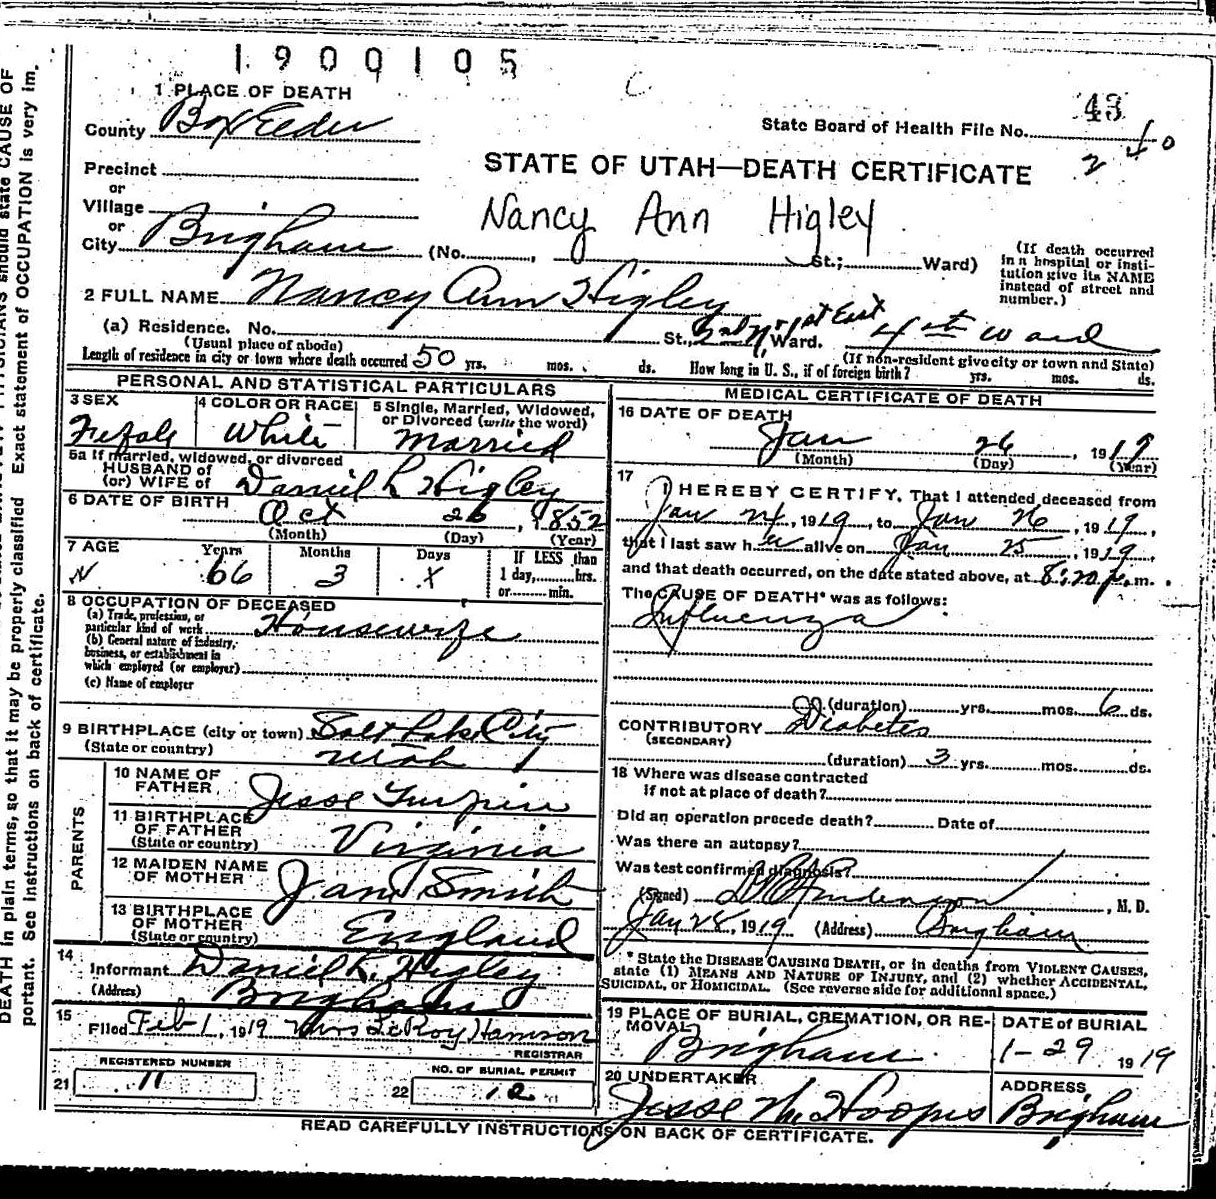 1900105
C
1 PLACE OF DEATH
County Box Elder
State Board of Health File No. 43
2 40
Precinct
or
Village
or
City Brigham (No. , St.; Ward)
STATE OF UTAH—DEATH CERTIFICATE
Nancy Ann Higley
(If death occurred
in a hospital or insti-
tution give its NAME
instead of street and
number.)
2 FULL NAME Nancy Ann Higley
(a) Residence. No. St., 2nd N. 1st East Ward. 4th Ward
(Usual place of abode) (If non-resident give city or town and State)
Length of residence in city or town where death occurred 50 yrs. mos. ds. How long in U. S., if of foreign birth? yrs. mos. ds.
PERSONAL AND STATISTICAL PARTICULARS
3 SEX 4 COLOR OR RACE 5 Single, Married, Widowed,
or Divorced (write the word)
Female White Married
5a If married, widowed, or divorced
HUSBAND of
(or) WIFE of Daniel L Higley
6 DATE OF BIRTH
Oct 26, 1852
(Month) (Day) (Year)
7 AGE Years Months Days If LESS than
66 3 x 1 day, hrs.
or min.
8 OCCUPATION OF DECEASED
(a) Trade, profession, or
particular kind of work Housewife
(b) General nature of industry,
business, or establishment in
which employed (or employer)
(c) Name of employer
9 BIRTHPLACE (city or town) Salt Lake City
(State or country) Utah
PARENTS
10 NAME OF
FATHER Jesse Turpin
11 BIRTHPLACE
OF FATHER
(State or country) Virginia
12 MAIDEN NAME
OF MOTHER Jane Smith
13 BIRTHPLACE
OF MOTHER
(State or country) England
14
Informant Daniel L. Higley
(Address) Brigham
15
Filed Feb 1, 1919 Mrs LeRoy Harrison
REGISTRAR
REGISTERED NUMBER NO. OF BURIAL PERMIT
21 11 22 12
MEDICAL CERTIFICATE OF DEATH
16 DATE OF DEATH
Jan 26, 1919
(Month) (Day) (Year)
17
I HEREBY CERTIFY, That I attended deceased from
Jan 24, 1919, to Jan 26, 1919,
that I last saw her alive on Jan 25, 1919,
and that death occurred, on the date stated above, at 8:20 p.m.
The CAUSE OF DEATH* was as follows:
Influenza
(duration) yrs. mos. 6 ds.
CONTRIBUTORY Diabetes
(SECONDARY)
(duration) 3 yrs. mos. ds.
18 Where was disease contracted
if not at place of death?
Did an operation precede death? Date of
Was there an autopsy?
Was test confirmed diagnosis?
(Signed) , M. D.
Jan 28, 1919 (Address) Brigham
* State the DISEASE CAUSING DEATH, or in deaths from VIOLENT CAUSES,
state (1) MEANS AND NATURE OF INJURY, and (2) whether ACCIDENTAL,
SUICIDAL, or HOMICIDAL. (See reverse side for additional space.)
19 PLACE OF BURIAL, CREMATION, OR RE-
MOVAL DATE OF BURIAL
Brigham 1-29 1919
20 UNDERTAKER ADDRESS
Jesse M. Hoopes Brigham
READ CAREFULLY INSTRUCTIONS ON BACK OF CERTIFICATE.
DEATH in plain terms, so that it may be properly classified Exact statement of OCCUPATION is very im-
portant. See instructions on back of certificate.